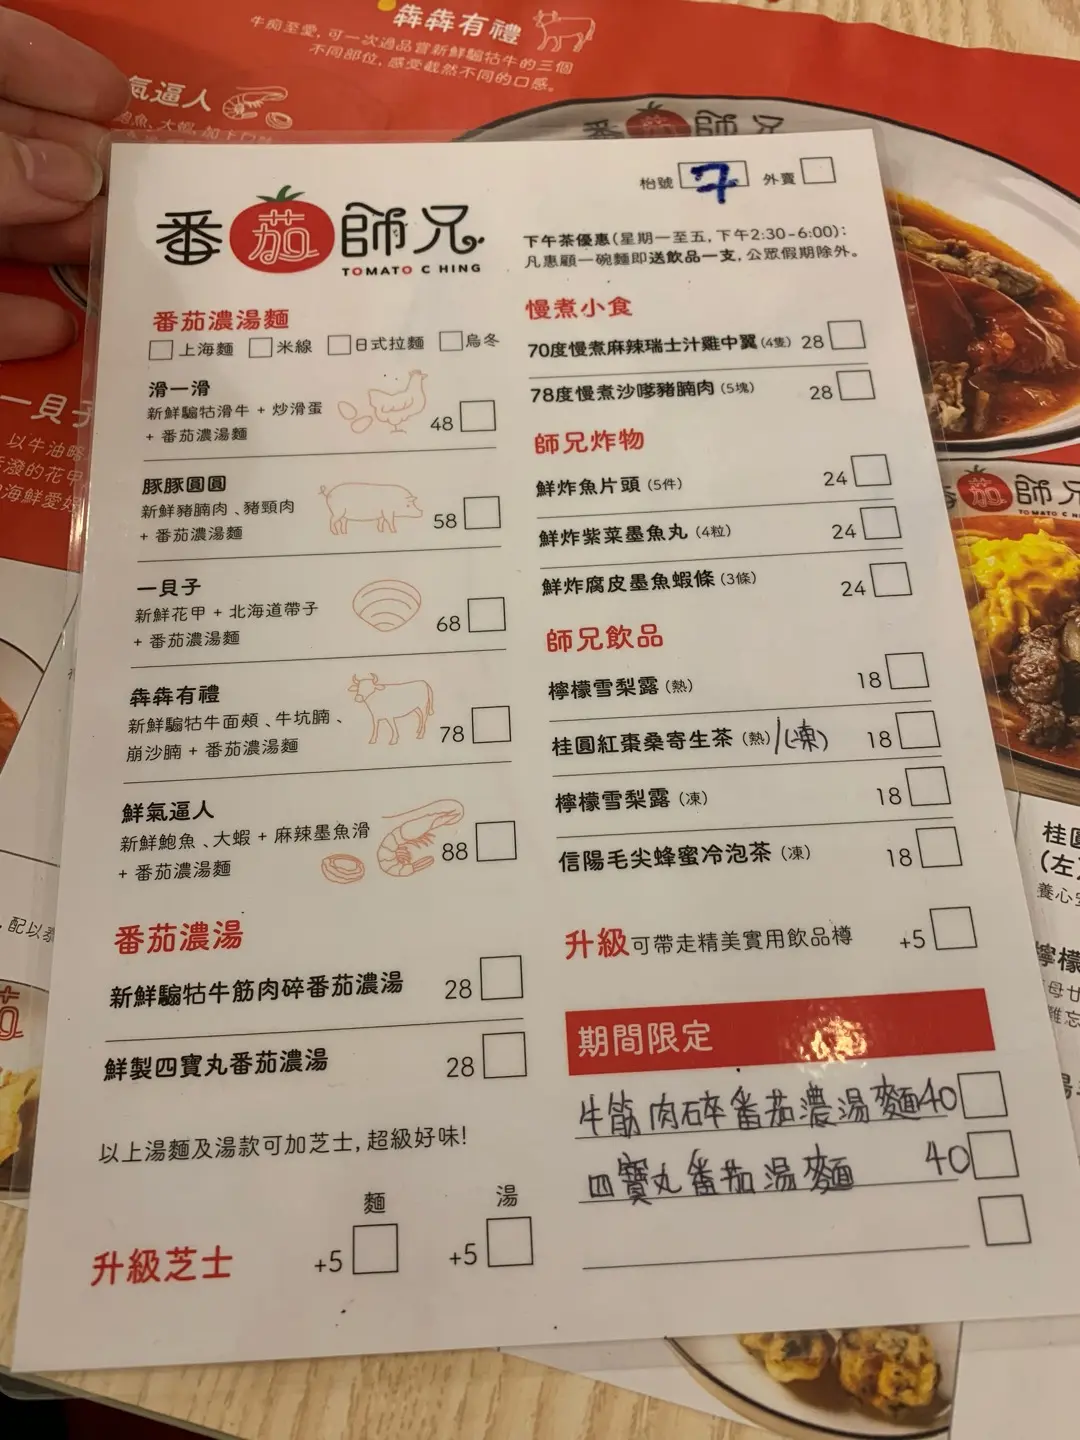 犇犇有禮
牛痴至愛, 可一次過品嘗新鮮騸牯牛的三個
不同部位, 感受截然不同的口感。
氣逼人
鮑魚、大蝦,
番茄師兄
枱號 7 外賣
番茄師兄
TOMATO CHING
下午茶優惠(星期一至五, 下午2:30-6:00):
凡惠顧一碗麵即送飲品一支, 公眾假期除外。
番茄濃湯麵
上海麵 米線 日式拉麵 烏冬
滑一滑
新鮮騸牯滑牛 + 炒滑蛋
+ 番茄濃湯麵 48
豚豚圓圓
新鮮豬腩肉、豬頸肉
+ 番茄濃湯麵 58
一貝子
新鮮花甲 + 北海道帶子
+ 番茄濃湯麵 68
犇犇有禮
新鮮騸牯牛面頰、牛坑腩、
崩沙腩 + 番茄濃湯麵 78
鮮氣逼人
新鮮鮑魚、大蝦 + 麻辣墨魚滑
+ 番茄濃湯麵 88
番茄濃湯
新鮮騸牯牛筋肉碎番茄濃湯 28
鮮製四寶丸番茄濃湯 28
以上湯麵及湯款可加芝士, 超級好味!
麵 湯
升級芝士 +5 +5
慢煮小食
70度慢煮麻辣瑞士汁雞中翼 (4隻) 28
78度慢煮沙嗲豬腩肉 (5塊) 28
師兄炸物
鮮炸魚片頭 (5件) 24
鮮炸紫菜墨魚丸 (4粒) 24
鮮炸腐皮墨魚蝦條 (3條) 24
師兄飲品
檸檬雪梨露 (熱) 18
桂圓紅棗桑寄生茶 (熱)/(凍) 18
檸檬雪梨露 (凍) 18
信陽毛尖蜂蜜冷泡茶 (凍) 18
升級可帶走精美實用飲品樽 +5
期間限定
牛筋肉碎番茄濃湯麵 40
四寶丸番茄湯麵 40
一貝子
以牛油
潑的花甲
海鮮愛好
, 配以
茄
茄師兄
TOMATO CHING
桂圓
(左
養心
檸檬
母廿
難忘